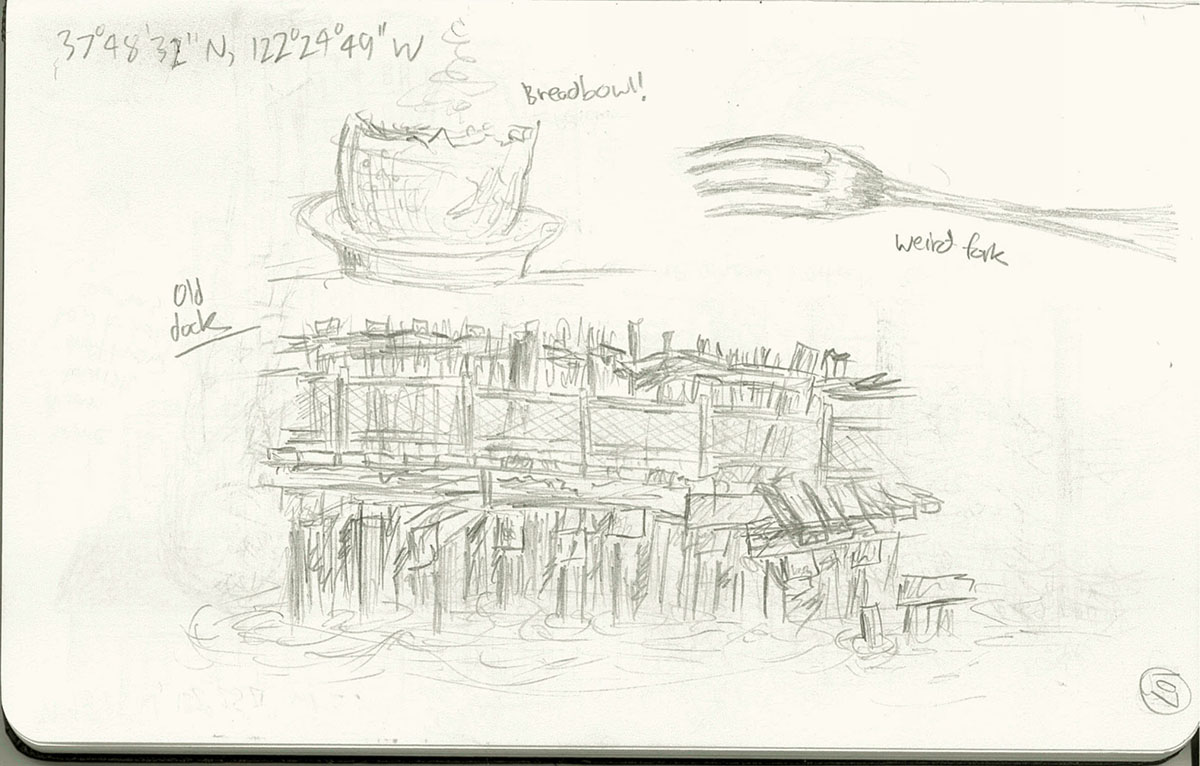 37°48'32"N, 122°24'49"W
Breadbowl!
weird fork
Old
dock
107